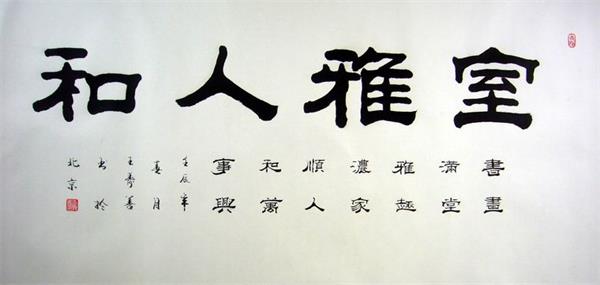 室雅人和
書畫
滿堂
雅趣
濃家
順人
和萬
事興
壬辰年
月
王
書於
北京